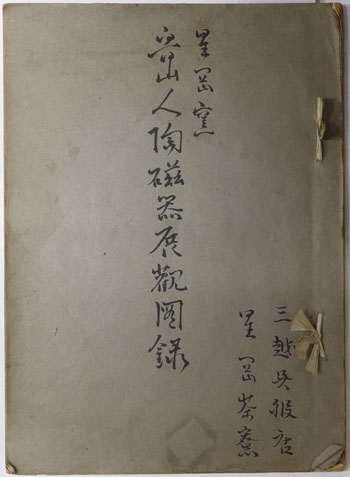 星岡窯
魯山人陶磁器展観図録
三越呉服店
星岡茶寮